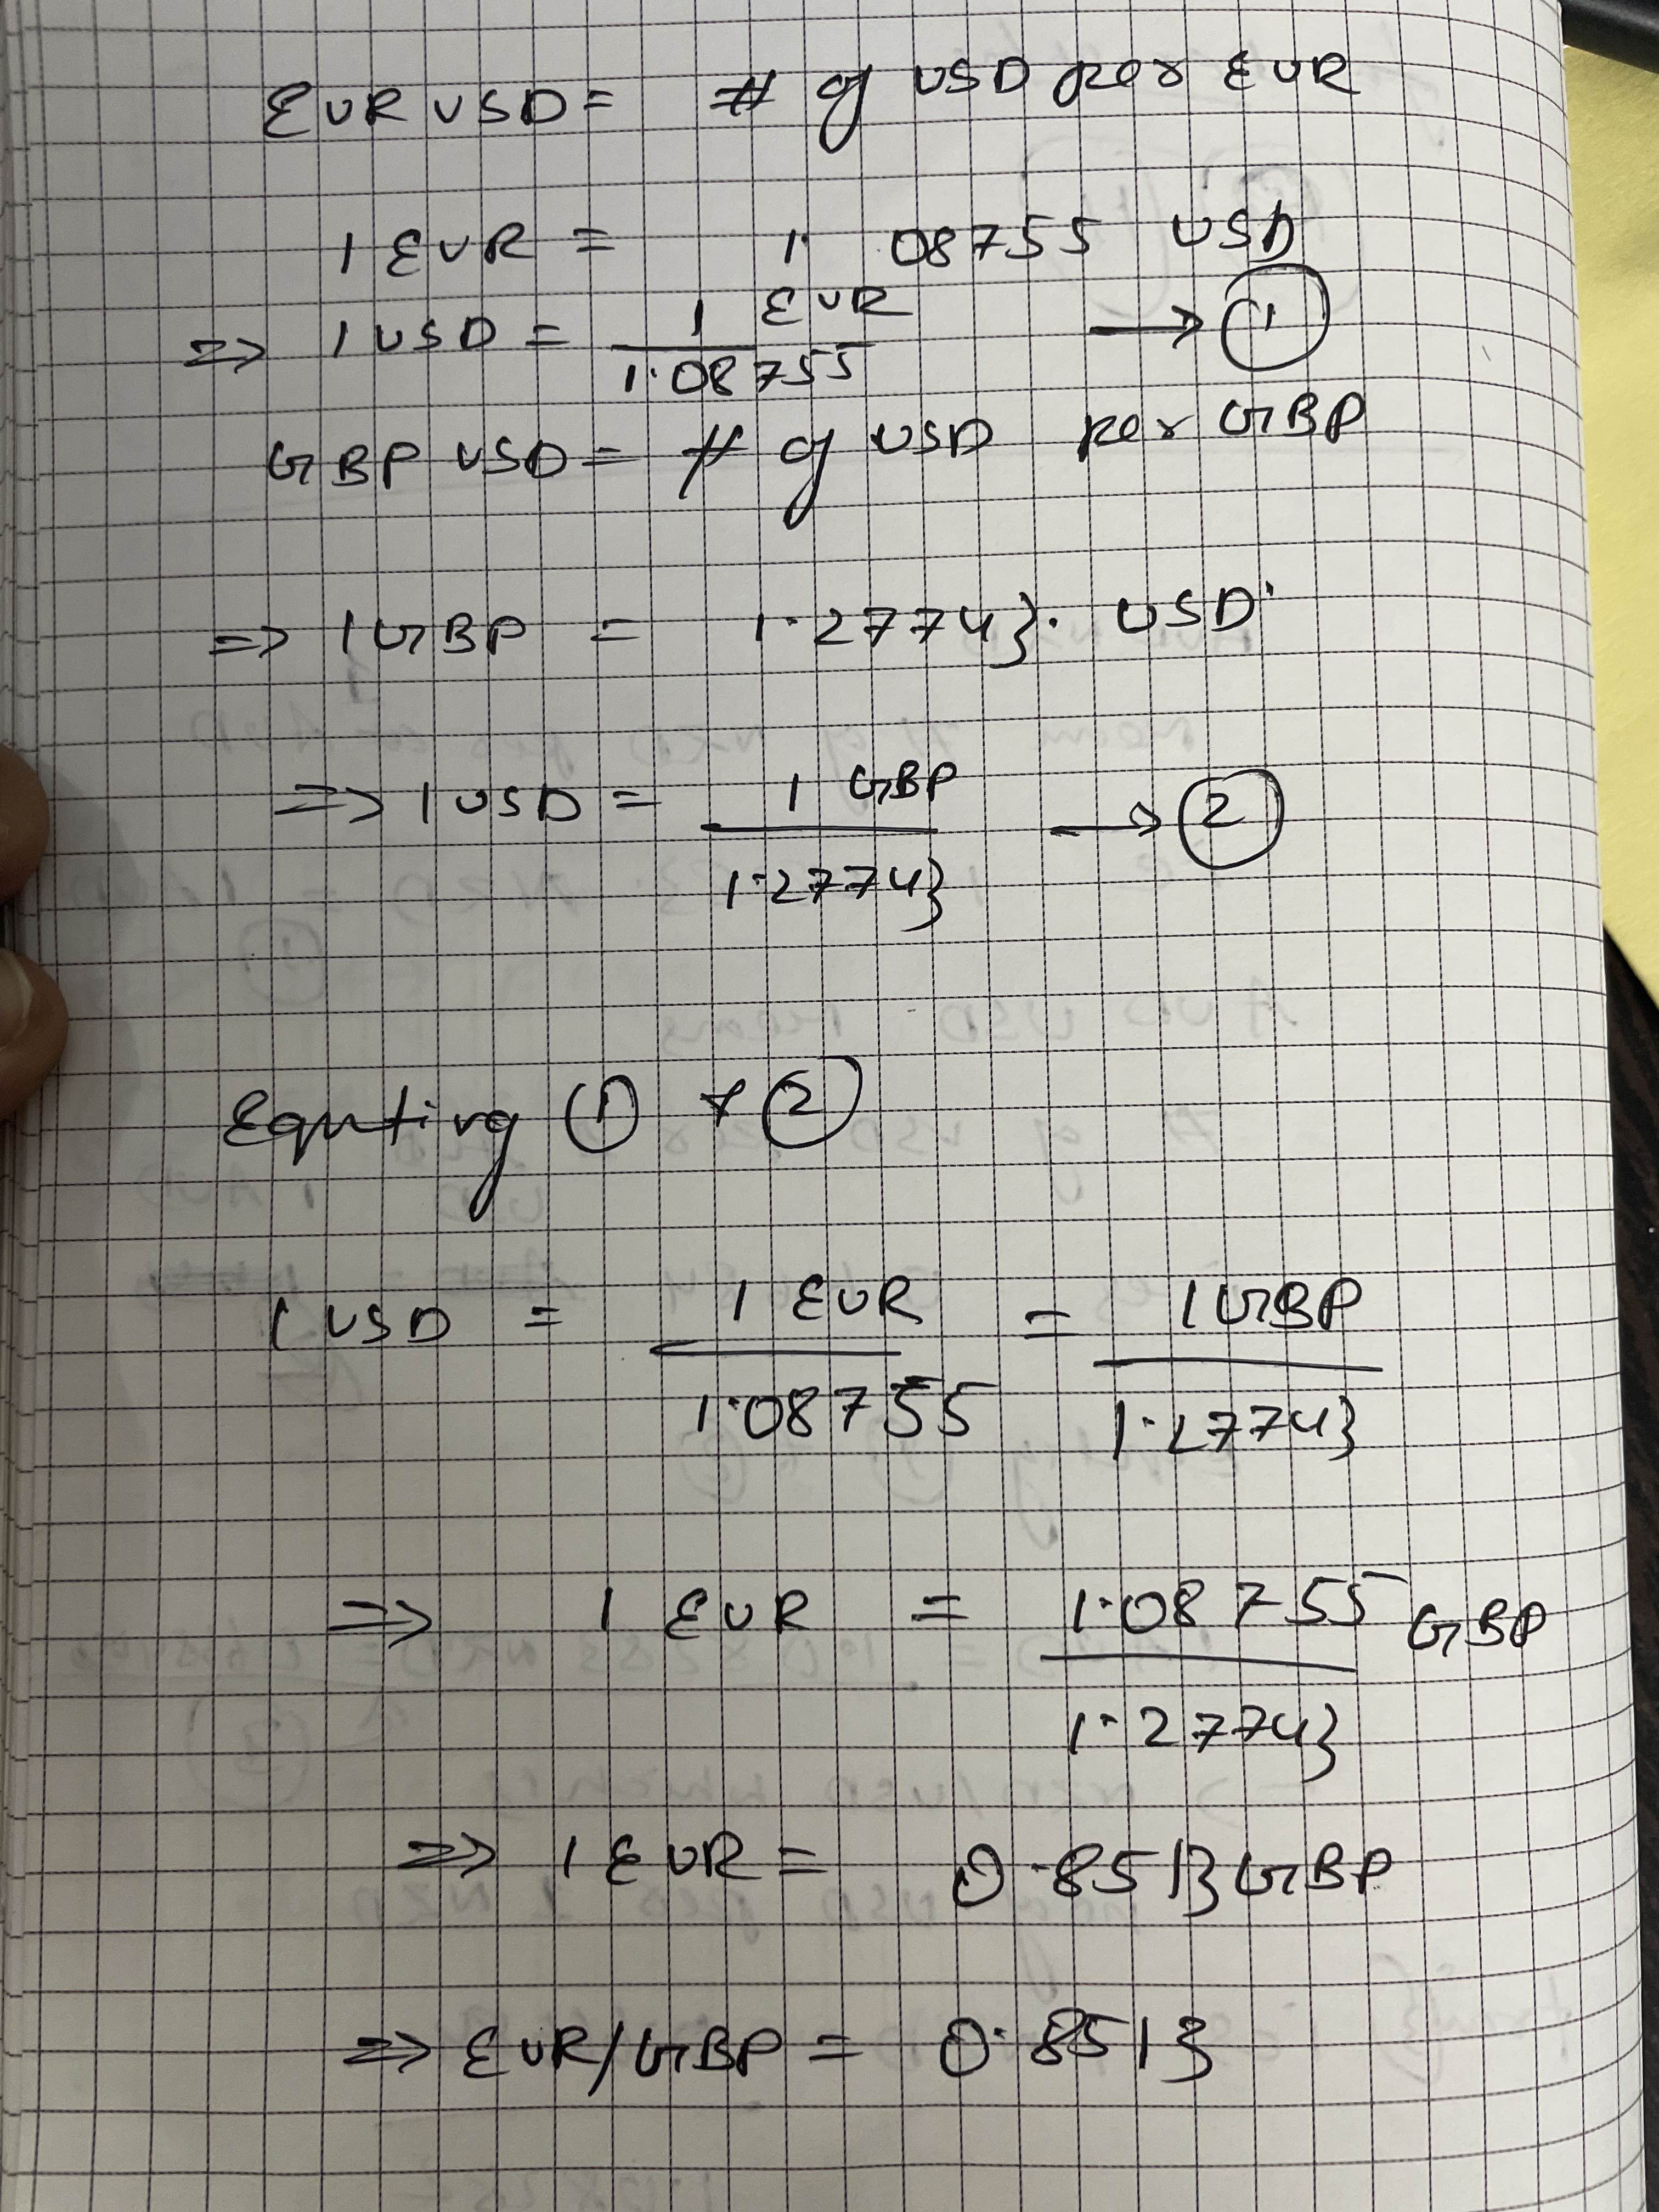 EUR USD = # of USD per EUR
1 EUR = 1. 08755 USD
=> 1 USD = 1 EUR / 1.08755 → ①
GBP USD = # of USD per GBP
=> 1 GBP = 1.27743. USD
=> 1 USD = 1 GBP / 1.27743 → ②
Equting ① & ②
1 USD = 1 EUR / 1.08755 = 1 GBP / 1.27743
=> 1 EUR = 1.08755 / 1.27743 GBP
=> 1 EUR = 0.8513 GBP
=> EUR/GBP = 0.8513